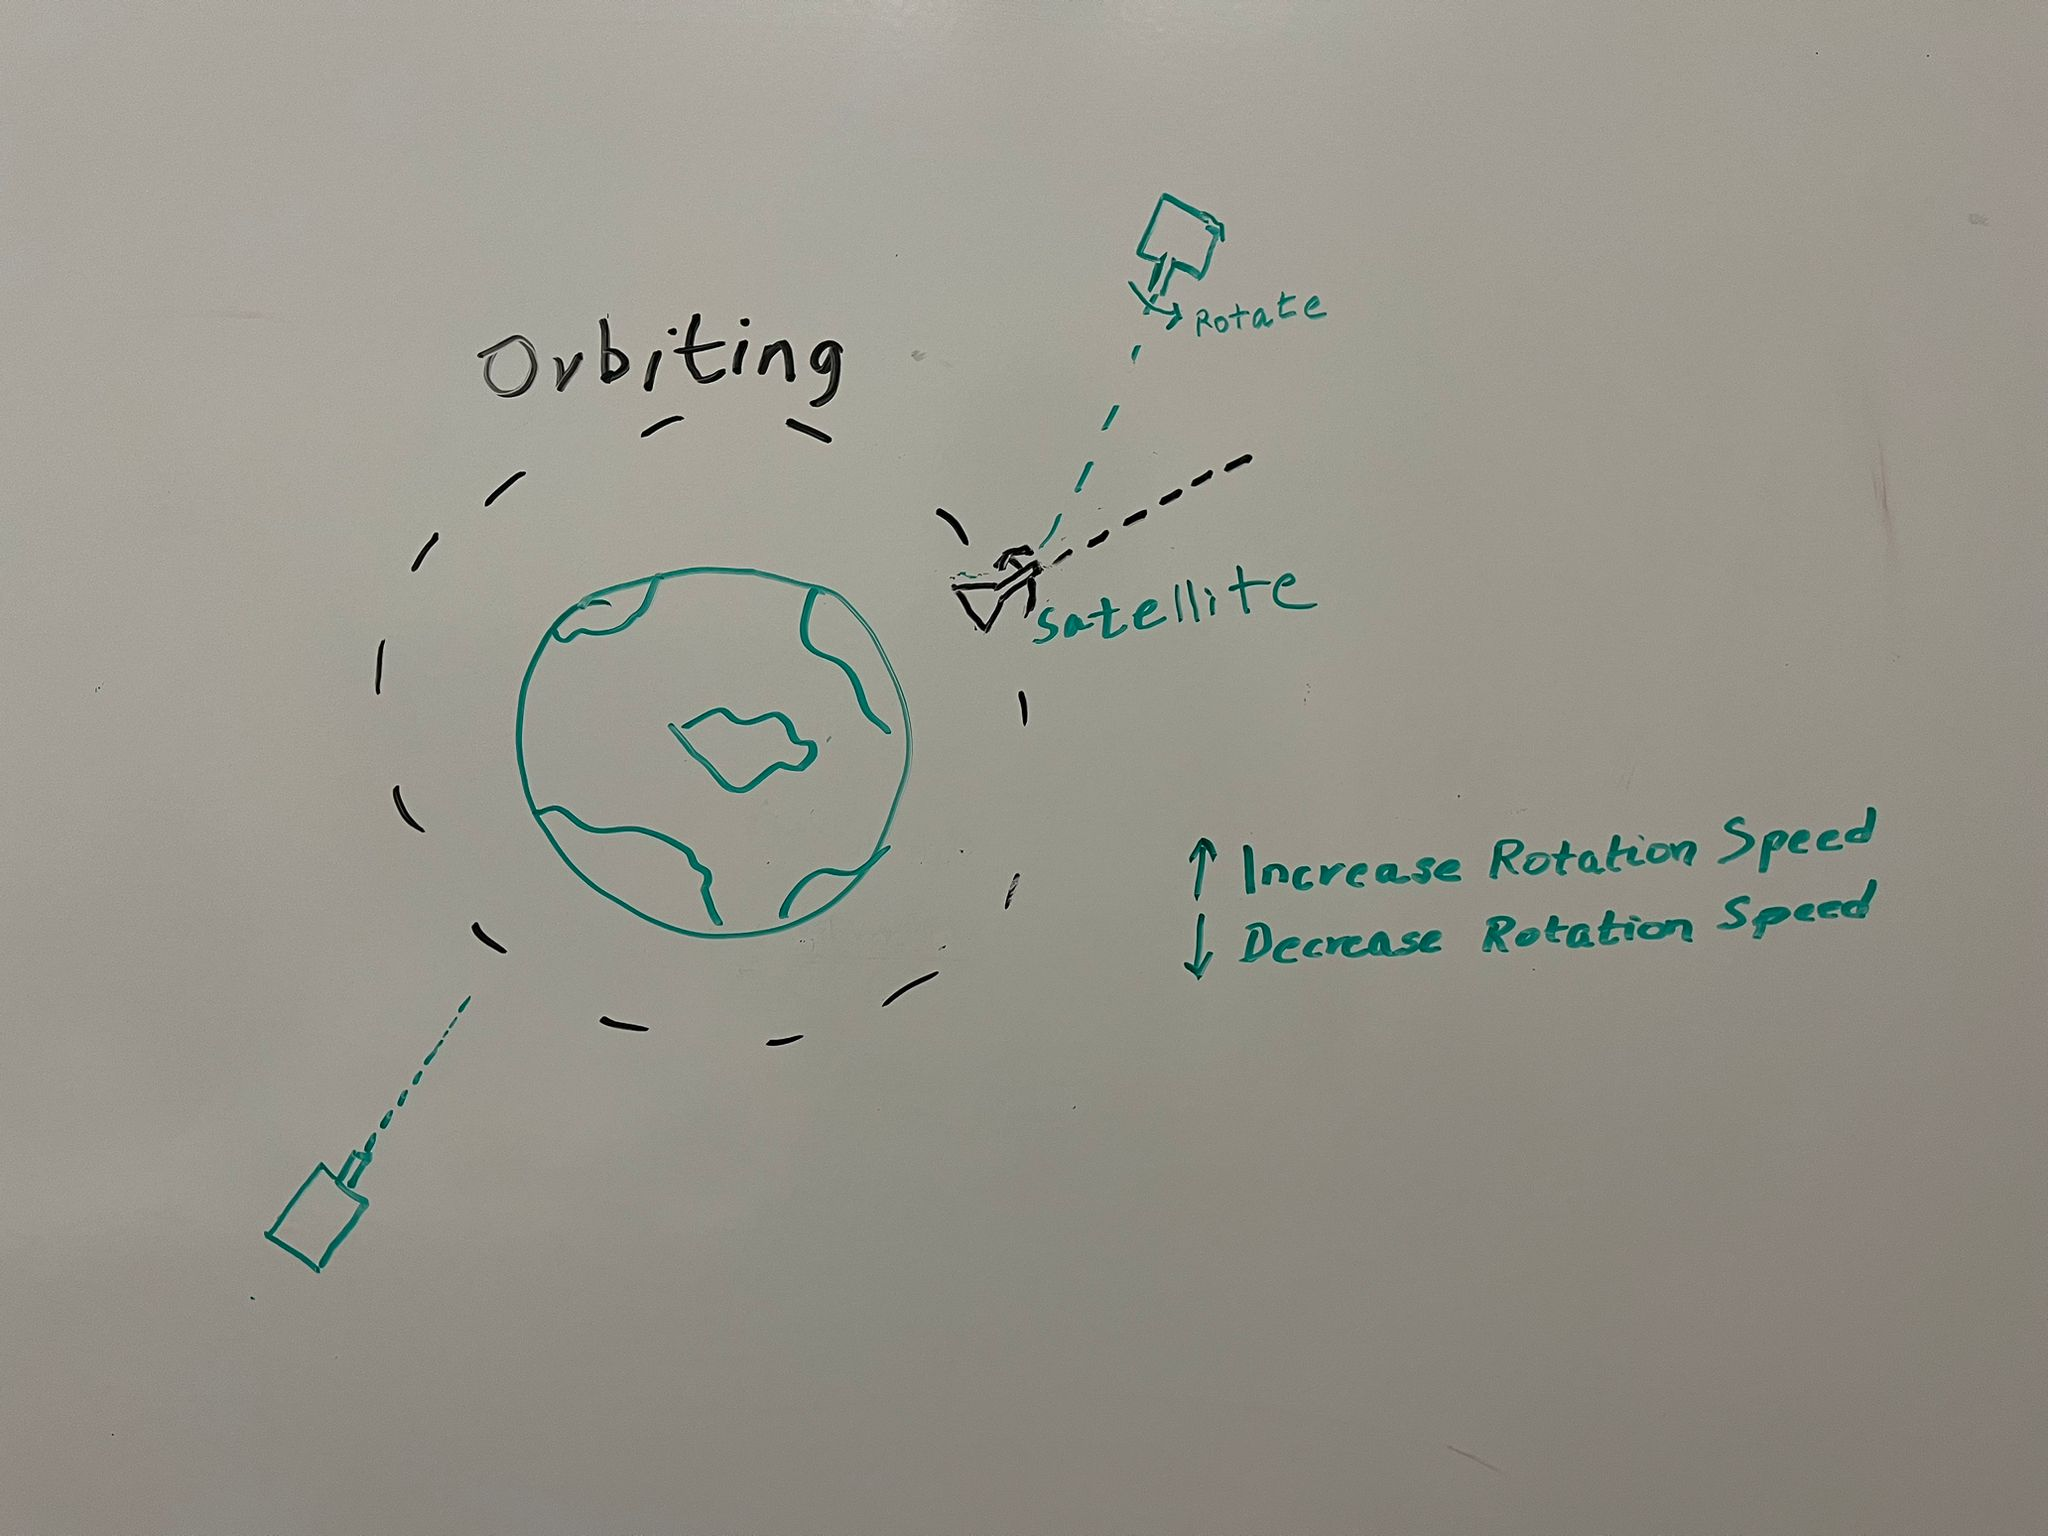 Orbiting
Rotate
Satellite
↑ Increase Rotation Speed
↓ Decrease Rotation Speed